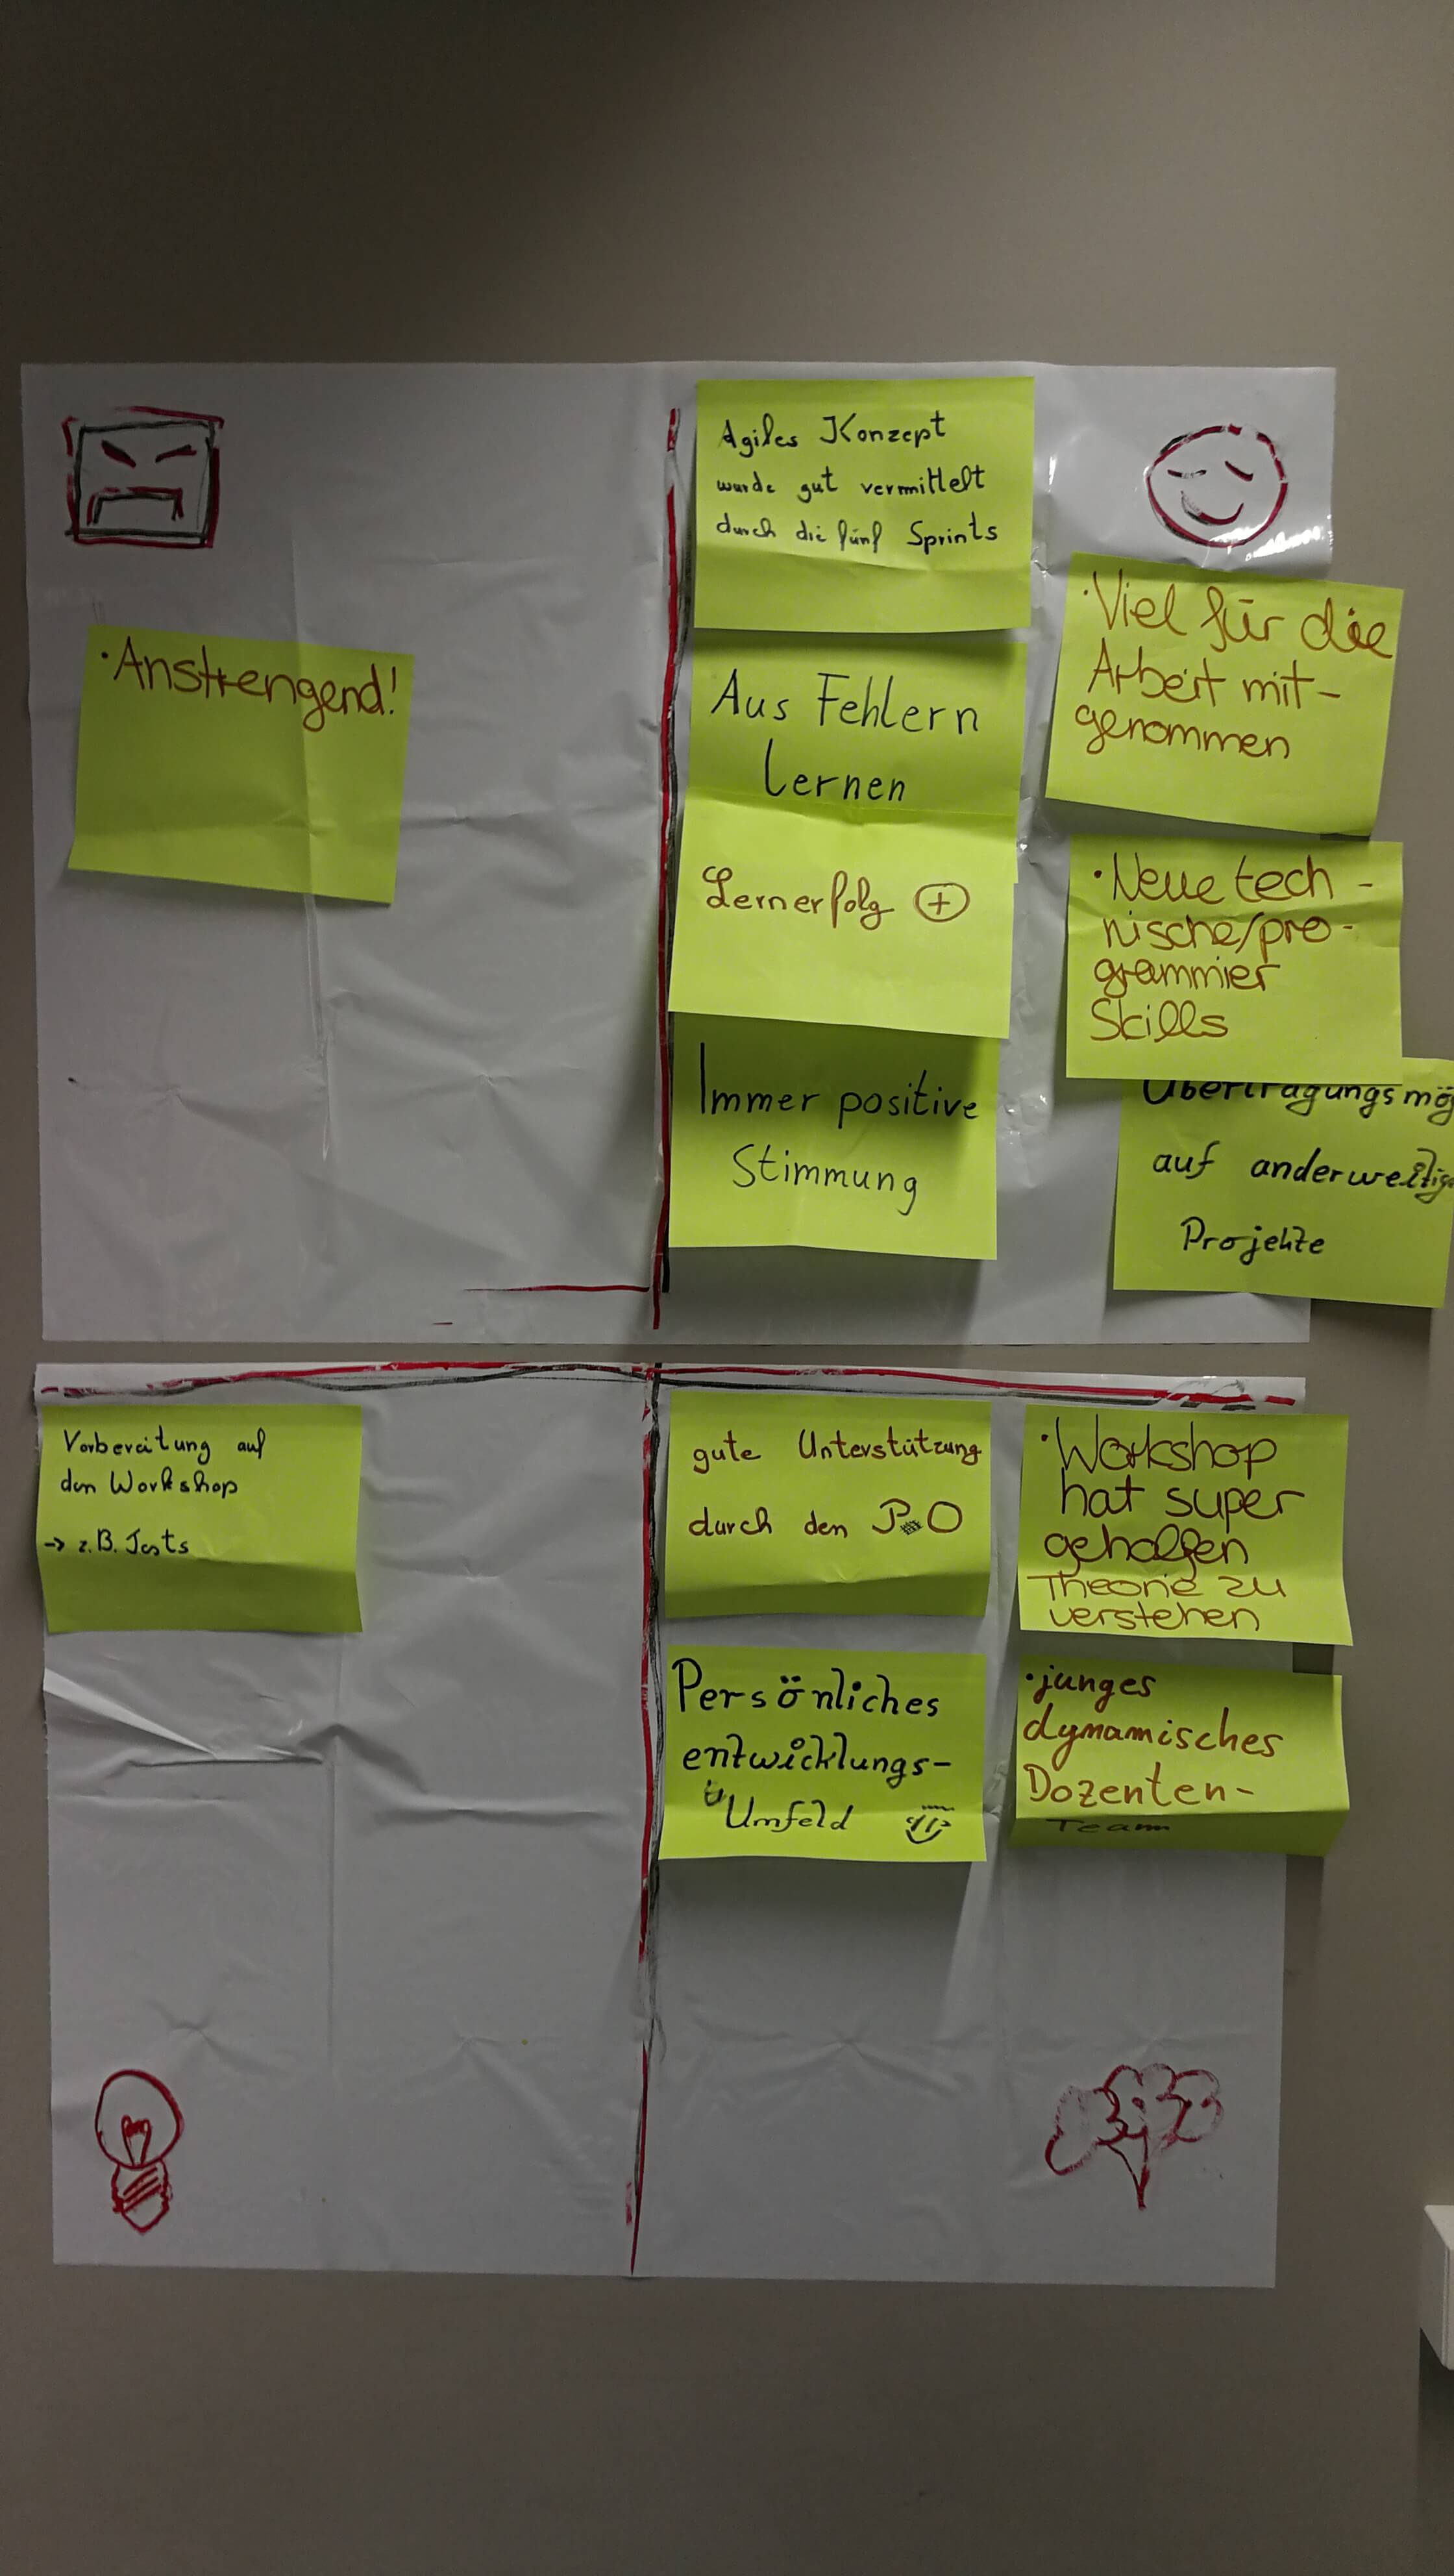 Agiles Konzept
wurde gut vermittelt
durch die fünf Sprints
· Viel für die
Arbeit mit-
genommen
· Anstrengend!
Aus Fehlern
lernen
Lernerfolg +
· Neue tech-
nische/pro-
grammier
Skills
Immer positive
Stimmung
Übertragungsmög
auf anderweitige
Projekte
Vorbereitung auf
den Workshop
→ z.B. Tests
gute Unterstützung
durch den PO
· Workshop
hat super
geholfen
Theorie zu
verstehen
Persönliches
entwicklungs-
Umfeld
· junges
dynamisches
Dozenten-
Team